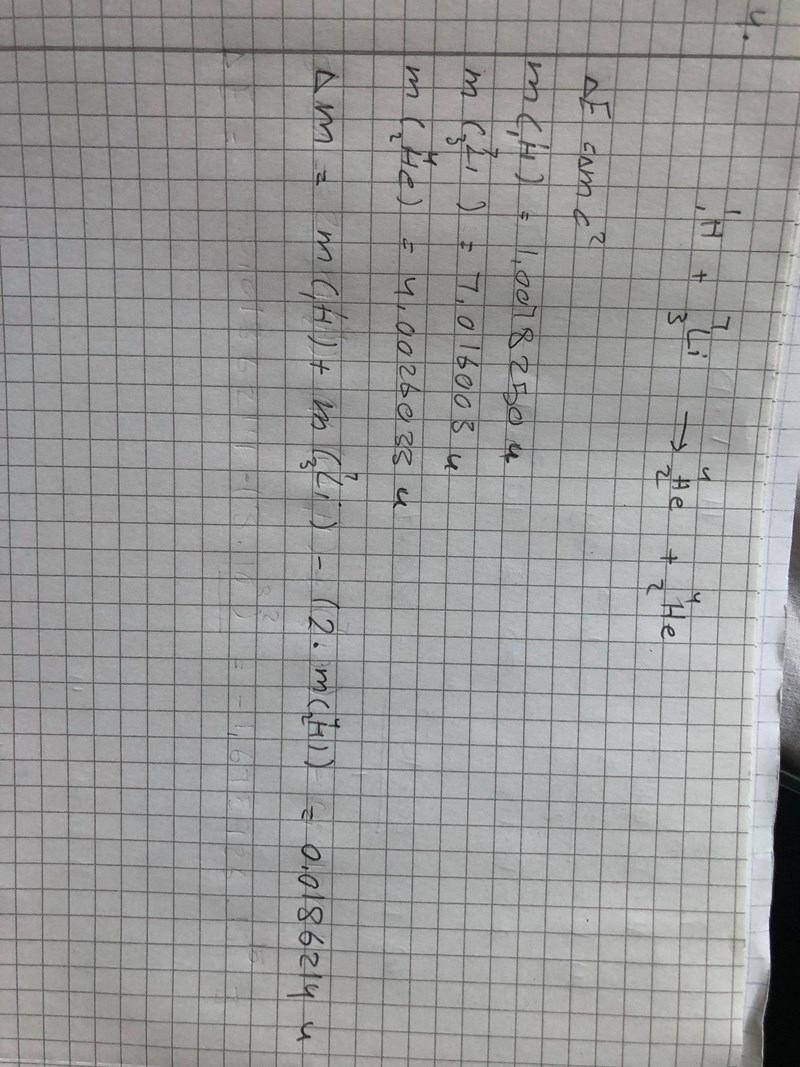 4.
¹₁H + ⁷₃Li → ⁴₂He + ⁴₂He
ΔE = Δmc²
m(₁H) = 1,0078250 u
m(⁷₃Li) = 7,016003 u
m(⁴₂He) = 4,0026033 u
Δm = m(₁H) + m(⁷₃Li) - (2·m(⁴₂H)) = 0,0186214 u